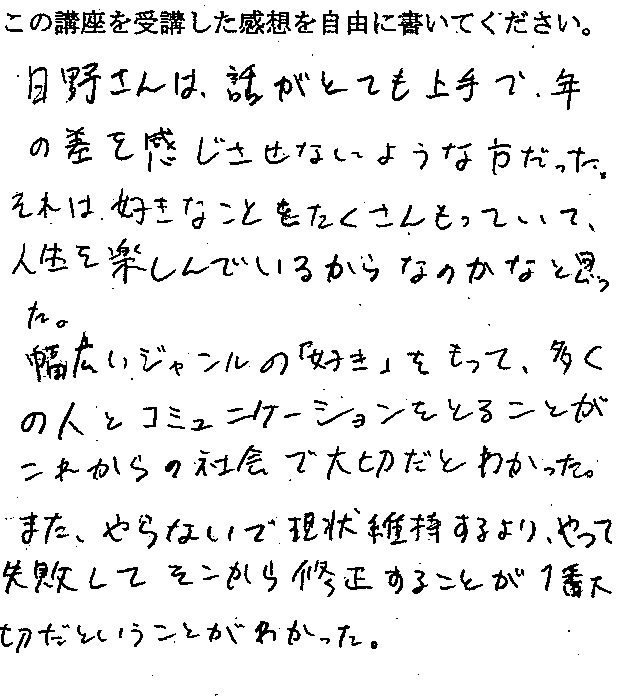 この講座を受講した感想を自由に書いてください。
日野さんは、話がとても上手で、年
の差を感じさせないような方だった。
それは、好きなことをたくさんもっていて、
人生を楽しんでいるからなのかなと思っ
た。
幅広いジャンルの「好き」をもって、多く
の人とコミュニケーションをとることが
これからの社会で大切だとわかった。
また、やらないで現状維持するより、やって
失敗してそこから修正することが1番大
切だということがわかった。